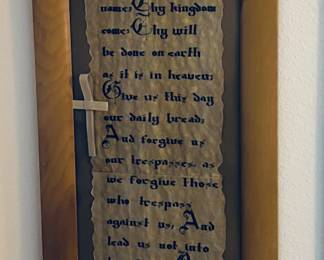 name; Thy kingdom
come; Thy will
be done on earth
as it is in heaven;
Give us this day
our daily bread;
And forgive us
our trespasses, as
we forgive those
who trespass
against us; And
lead us not into